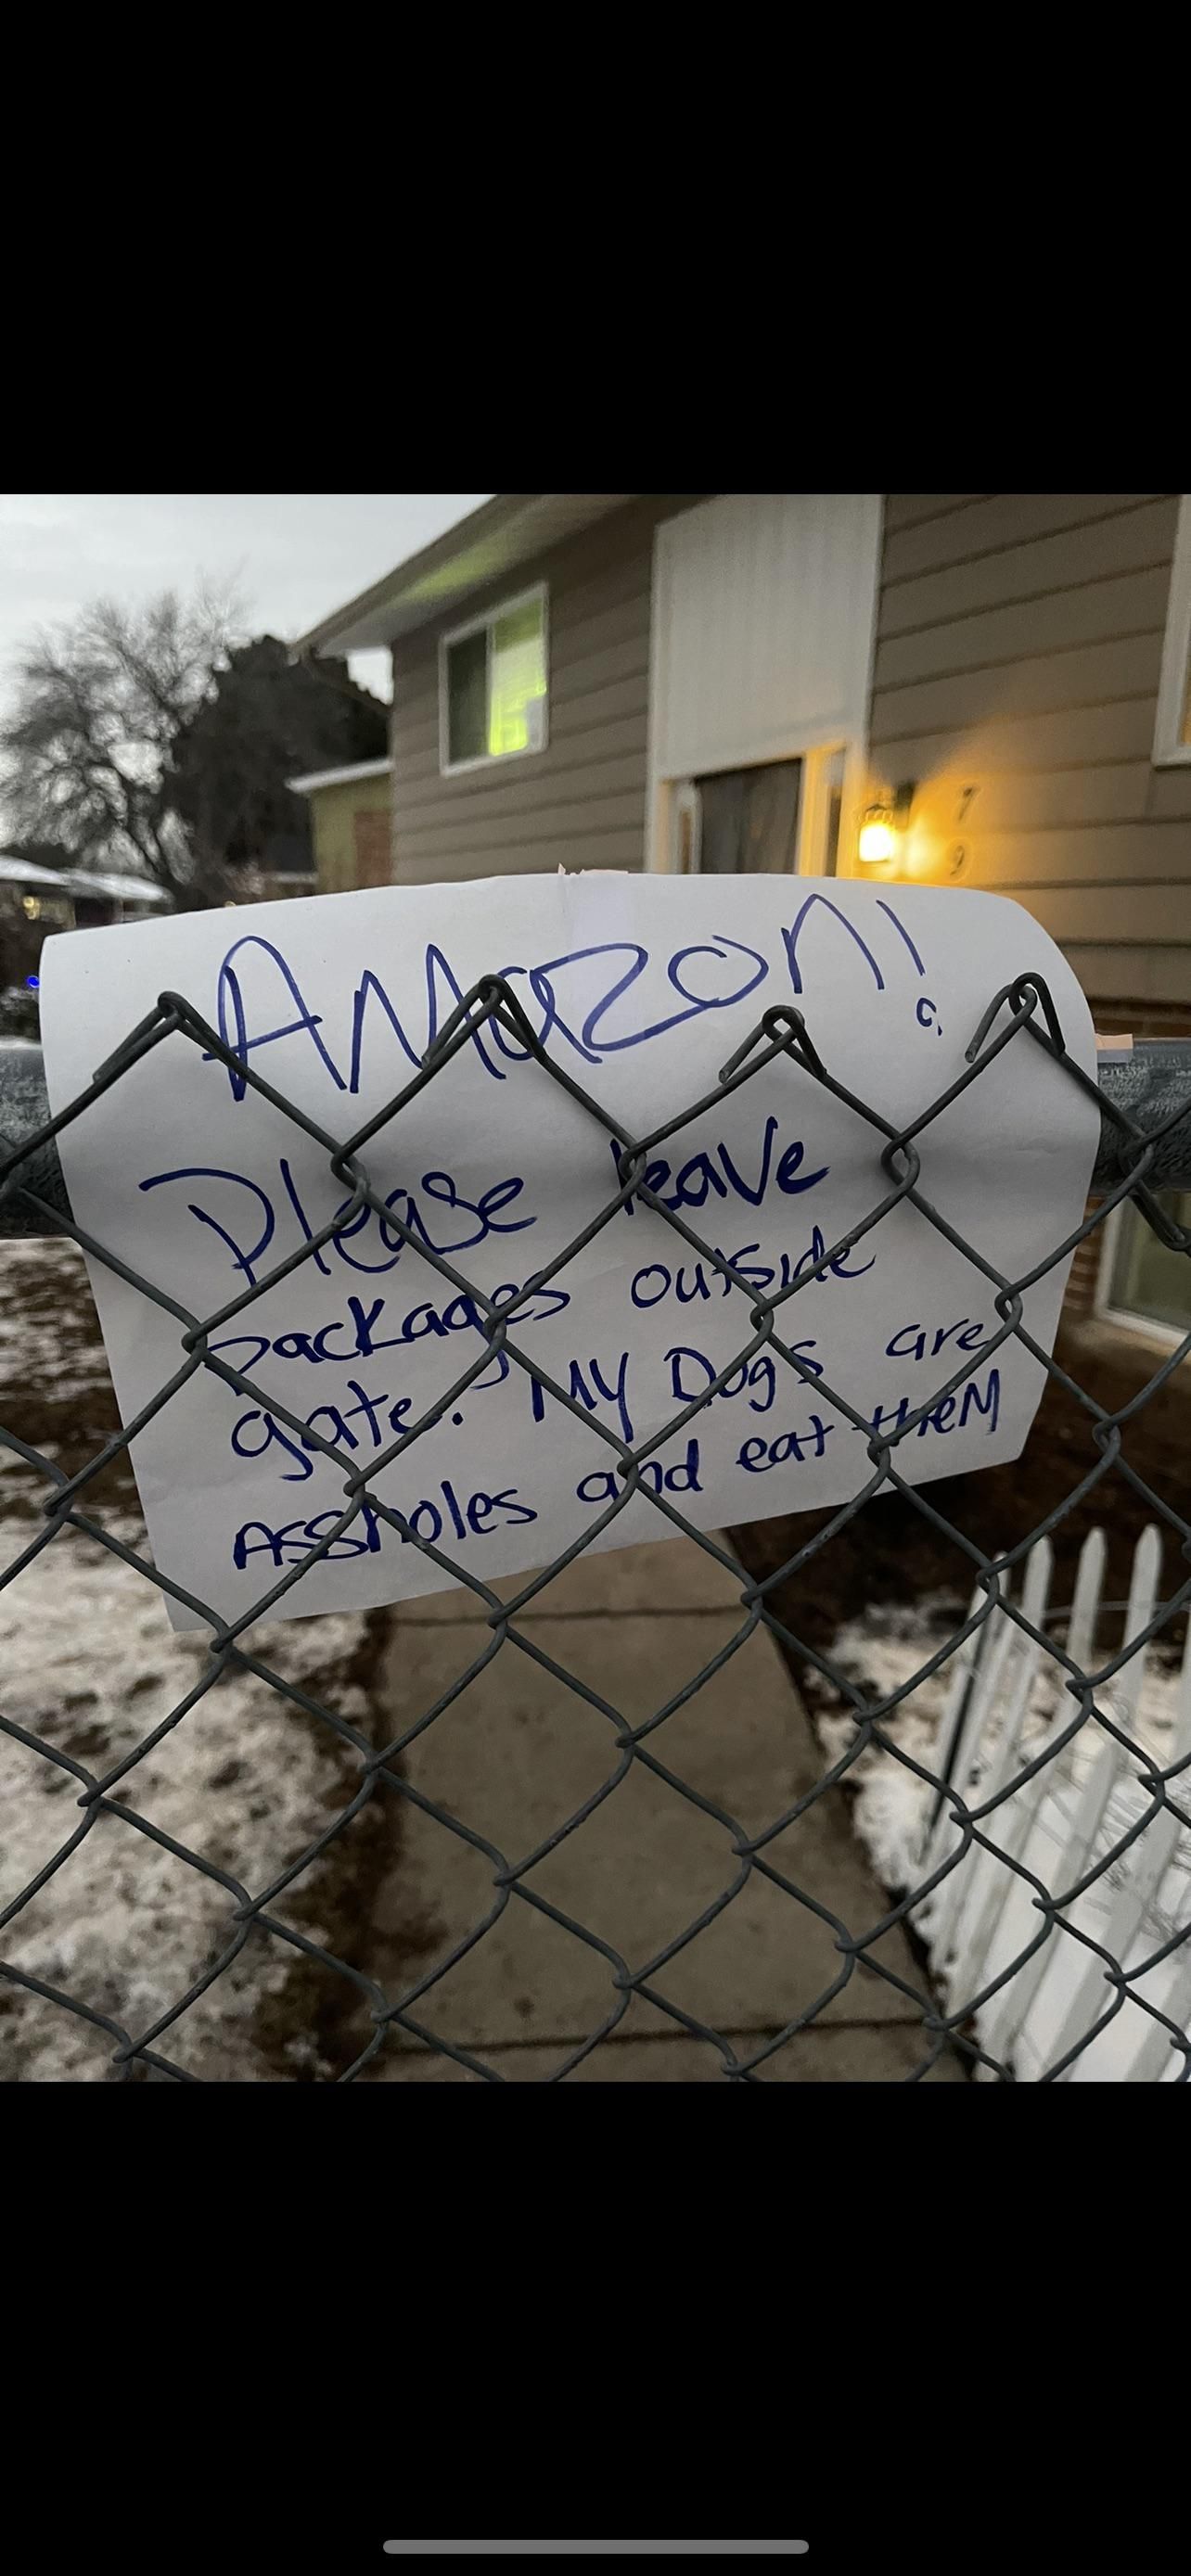 7
9
AMazon!
Please leave
packages outside
gate. My Dogs are
Assholes and eat theM